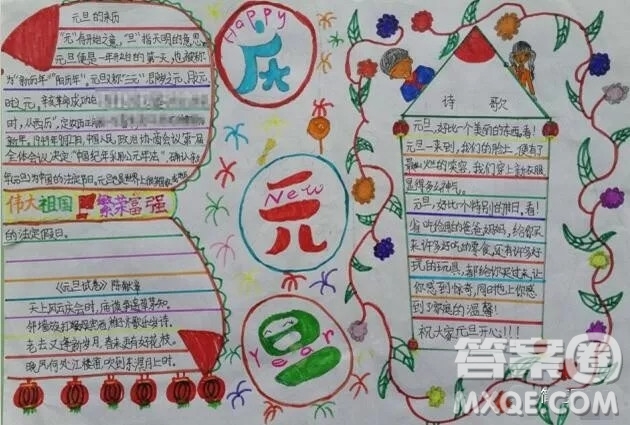 元旦的来历
"元"有开始之意，"旦"指天明的意思
元旦便是一年开始的第一天，也被称
为"新历年""阳历年"。元旦又称"三元"
时之元，辛亥革命成功
时，从西历"，定
新年。1949年9月27日，中国人民政治协商会议第一届
全体会议决定"中国纪年采用公元年法"
年元旦为中国的法定节日。
伟大祖国 繁荣富强
的法定假日。
《元旦试卷》 陈献章
天上风云庆会时，庙谟争遗草茅知。
老去又逢新岁月，春来更有好花枝。
晚风何处江楼笛，吹到东溟月上时。
Happy
庆
New
元
Year
旦
诗 歌
元旦，好比一个美丽的东西，看！
元旦一来到，我们的脸上，便有了
最灿烂的笑容，我们穿上新衣服
显得多么神气。
元旦，好比一个特别的节日，看！
省吃俭用的爸爸妈妈，给你买
来许多好吃的零食，还有许多好
玩的玩具，都给你买过来，让
你感到惊奇，同时也让你感
到了家庭的温馨！
祝大家元旦开心！！！
答案圈
MXQE.COM